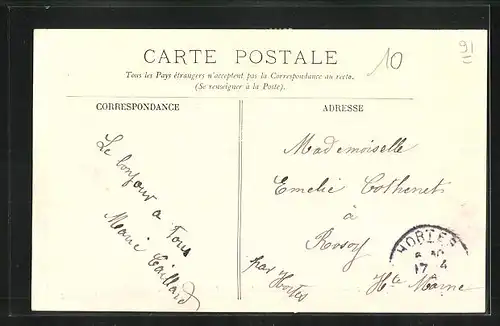 CARTE POSTALE
Tous les Pays étrangers n'acceptent pas la Correspondance au recto.
(Se renseigner à la Poste).
10
91
CORRESPONDANCE
ADRESSE
Le bonjour a Tous
Marie Gaillard
Mademoiselle
Emelie Cothenet
à
Rosoy
par Hortes
Hte Marne
HORTES
17 4